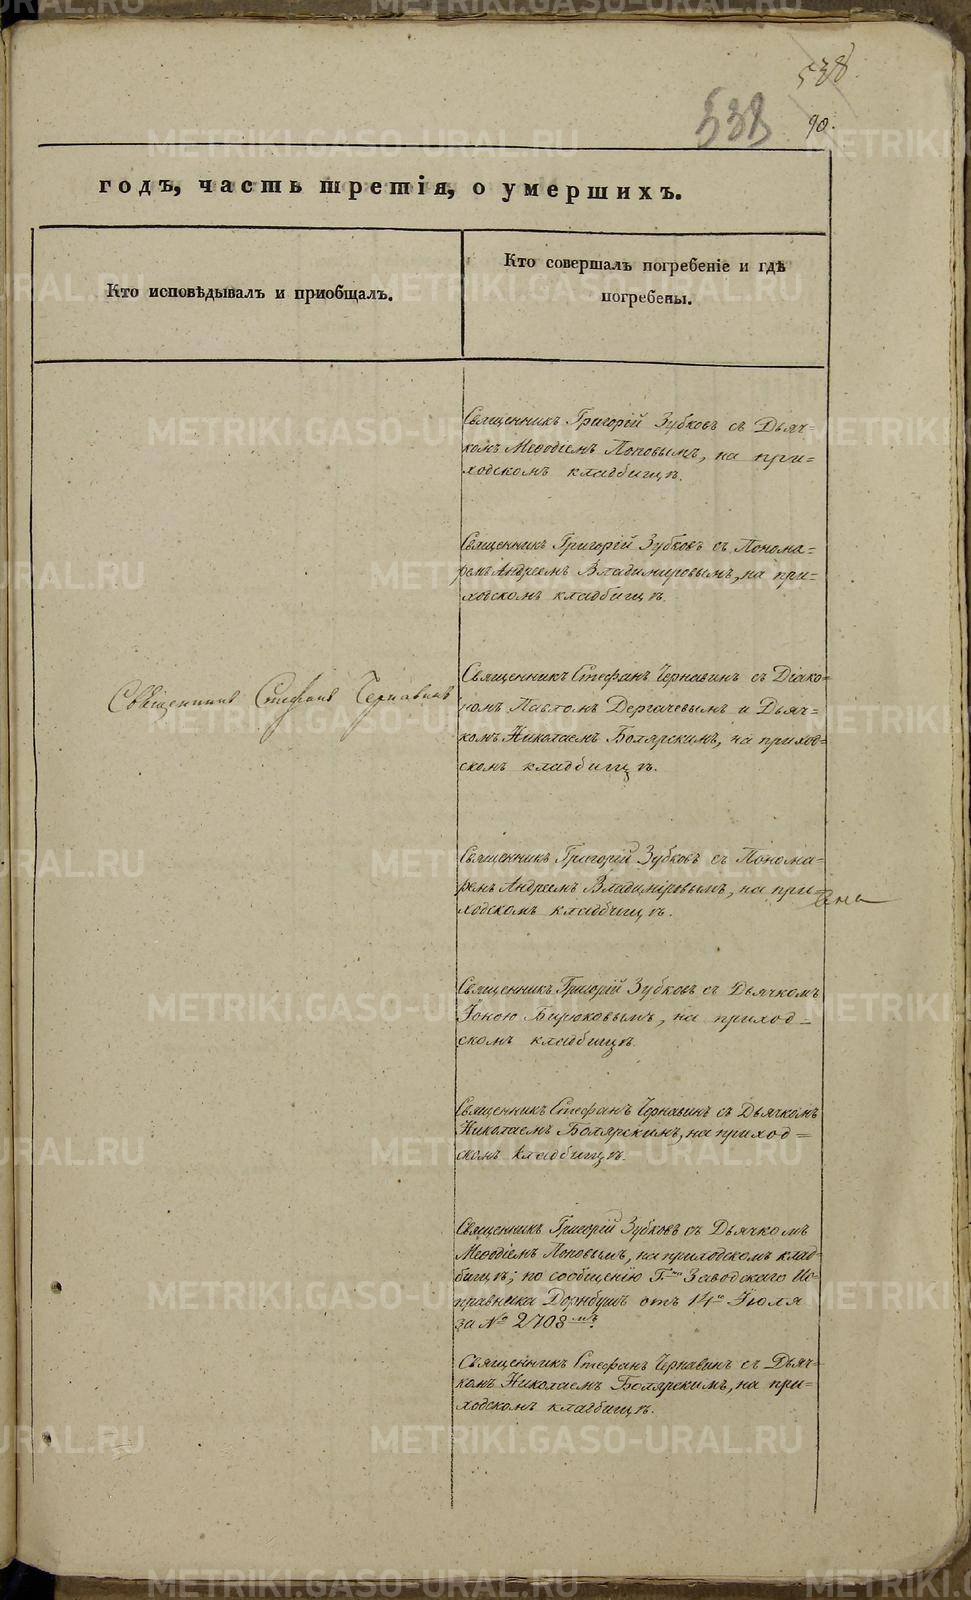 538
538 90.
годъ, часть третія, о умершихъ.
Кто исповѣдывалъ и приобщалъ.
Кто совершалъ погребеніе и гдѣ
погребены.
Священникъ Григорій Зубковъ съ Дьяч=
комъ Меѳодіемъ Поповымъ, на при=
ходскомъ кладбищѣ.
Священникъ Григорій Зубковъ съ Понома=
ремъ Андреемъ Владимировымъ, на при=
ходскомъ кладбищѣ.
Священникъ Стефанъ Чернавинъ
Священникъ Стефанъ Чернавинъ съ Діако=
номъ Павломъ Дергачевымъ и Дьяч=
комъ Николаемъ Боярскимъ, на приход=
скомъ кладбищѣ.
Священникъ Григорій Зубковъ съ Понома=
ремъ Андреемъ Владиміровымъ, на при=
ходскомъ кладбищѣ.
Священникъ Григорій Зубковъ съ Дьячкомъ
Іоною Бирюковымъ, на приход=
скомъ кладбищѣ.
Священникъ Стефанъ Чернавинъ съ Дьячкомъ
Николаемъ Боярскимъ, на приход=
скомъ кладбищѣ.
Священникъ Григорій Зубковъ съ Дьячкомъ
Меѳодіемъ Поповымъ, на приходскомъ клад=
бищѣ; по сообщенію Г. Заводскаго Ис=
правника Дорнбушъ отъ 14го Іюля
за № 2708мъ.
Священникъ Стефанъ Чернавинъ съ Дьяч=
комъ Николаемъ Боярскимъ, на при=
ходскомъ кладбищѣ.
METRIKI.GASO-URAL.RU